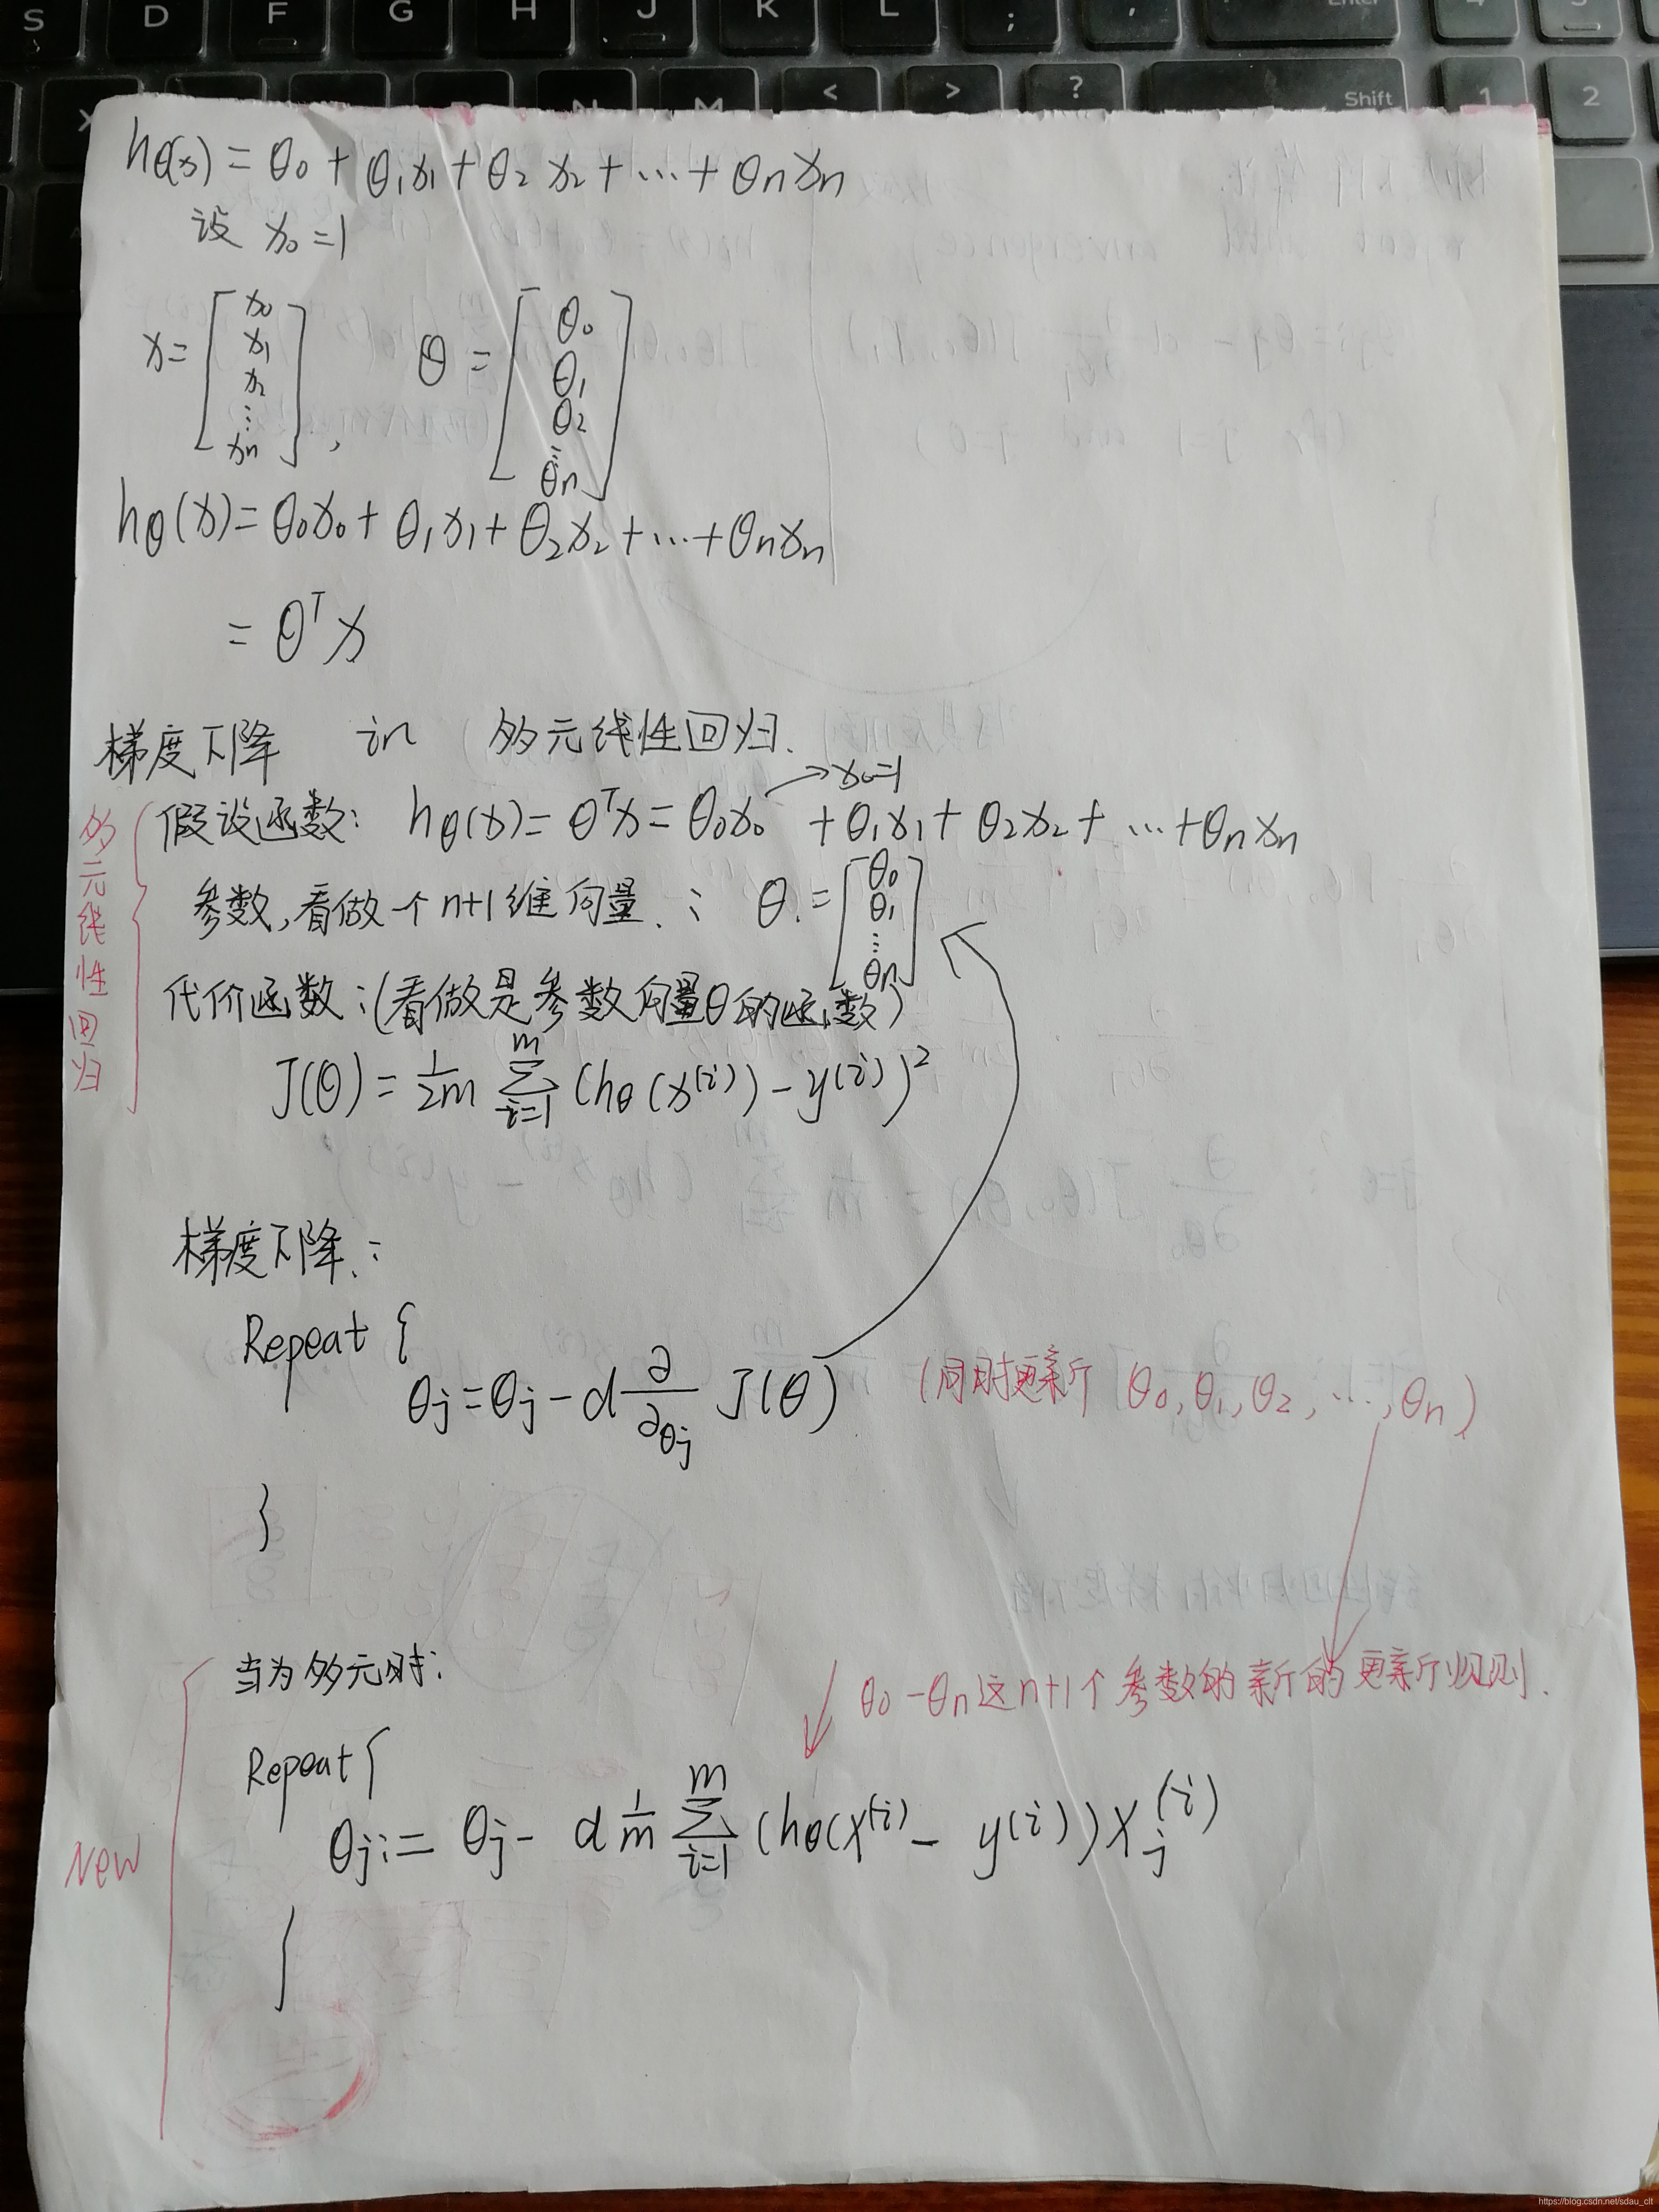 S D F G H J K L ; '
X N M < > ? Shift 1 2
hθ(x) = θ₀ + θ₁x₁ + θ₂x₂ + … + θnxn
设 x₀ = 1
x = [x₀ x₁ x₂ ⋮ xn], θ = [θ₀ θ₁ θ₂ ⋮ θn]
hθ(x) = θ₀x₀ + θ₁x₁ + θ₂x₂ + … + θnxn
= θᵀx
梯度下降 in 多元线性回归.
→ x₀=1
多元线性回归
假设函数: hθ(x) = θᵀx = θ₀x₀ + θ₁x₁ + θ₂x₂ + … + θnxn
参数,看做一个n+1维向量.: θ. = [θ₀ θ₁ ⋮ θn]
代价函数:(看做是参数向量θ的函数)
J(θ) = 1/2m Σ_{i=1}^{m} (hθ(x⁽ⁱ⁾) - y⁽ⁱ⁾)²
梯度下降.:
Repeat {
θj = θj - d ∂/∂θj J(θ) (同时更新 θ₀, θ₁, θ₂, …, θn)
}
当为多元时:
θ₀-θn这n+1个参数的新的更新规则.
Repeat {
New
θj := θj - d 1/m Σ_{i=1}^{m} (hθ(x⁽ⁱ⁾ - y⁽ⁱ⁾)) x_j⁽ⁱ⁾
}
https://blog.csdn.net/sdau_clt